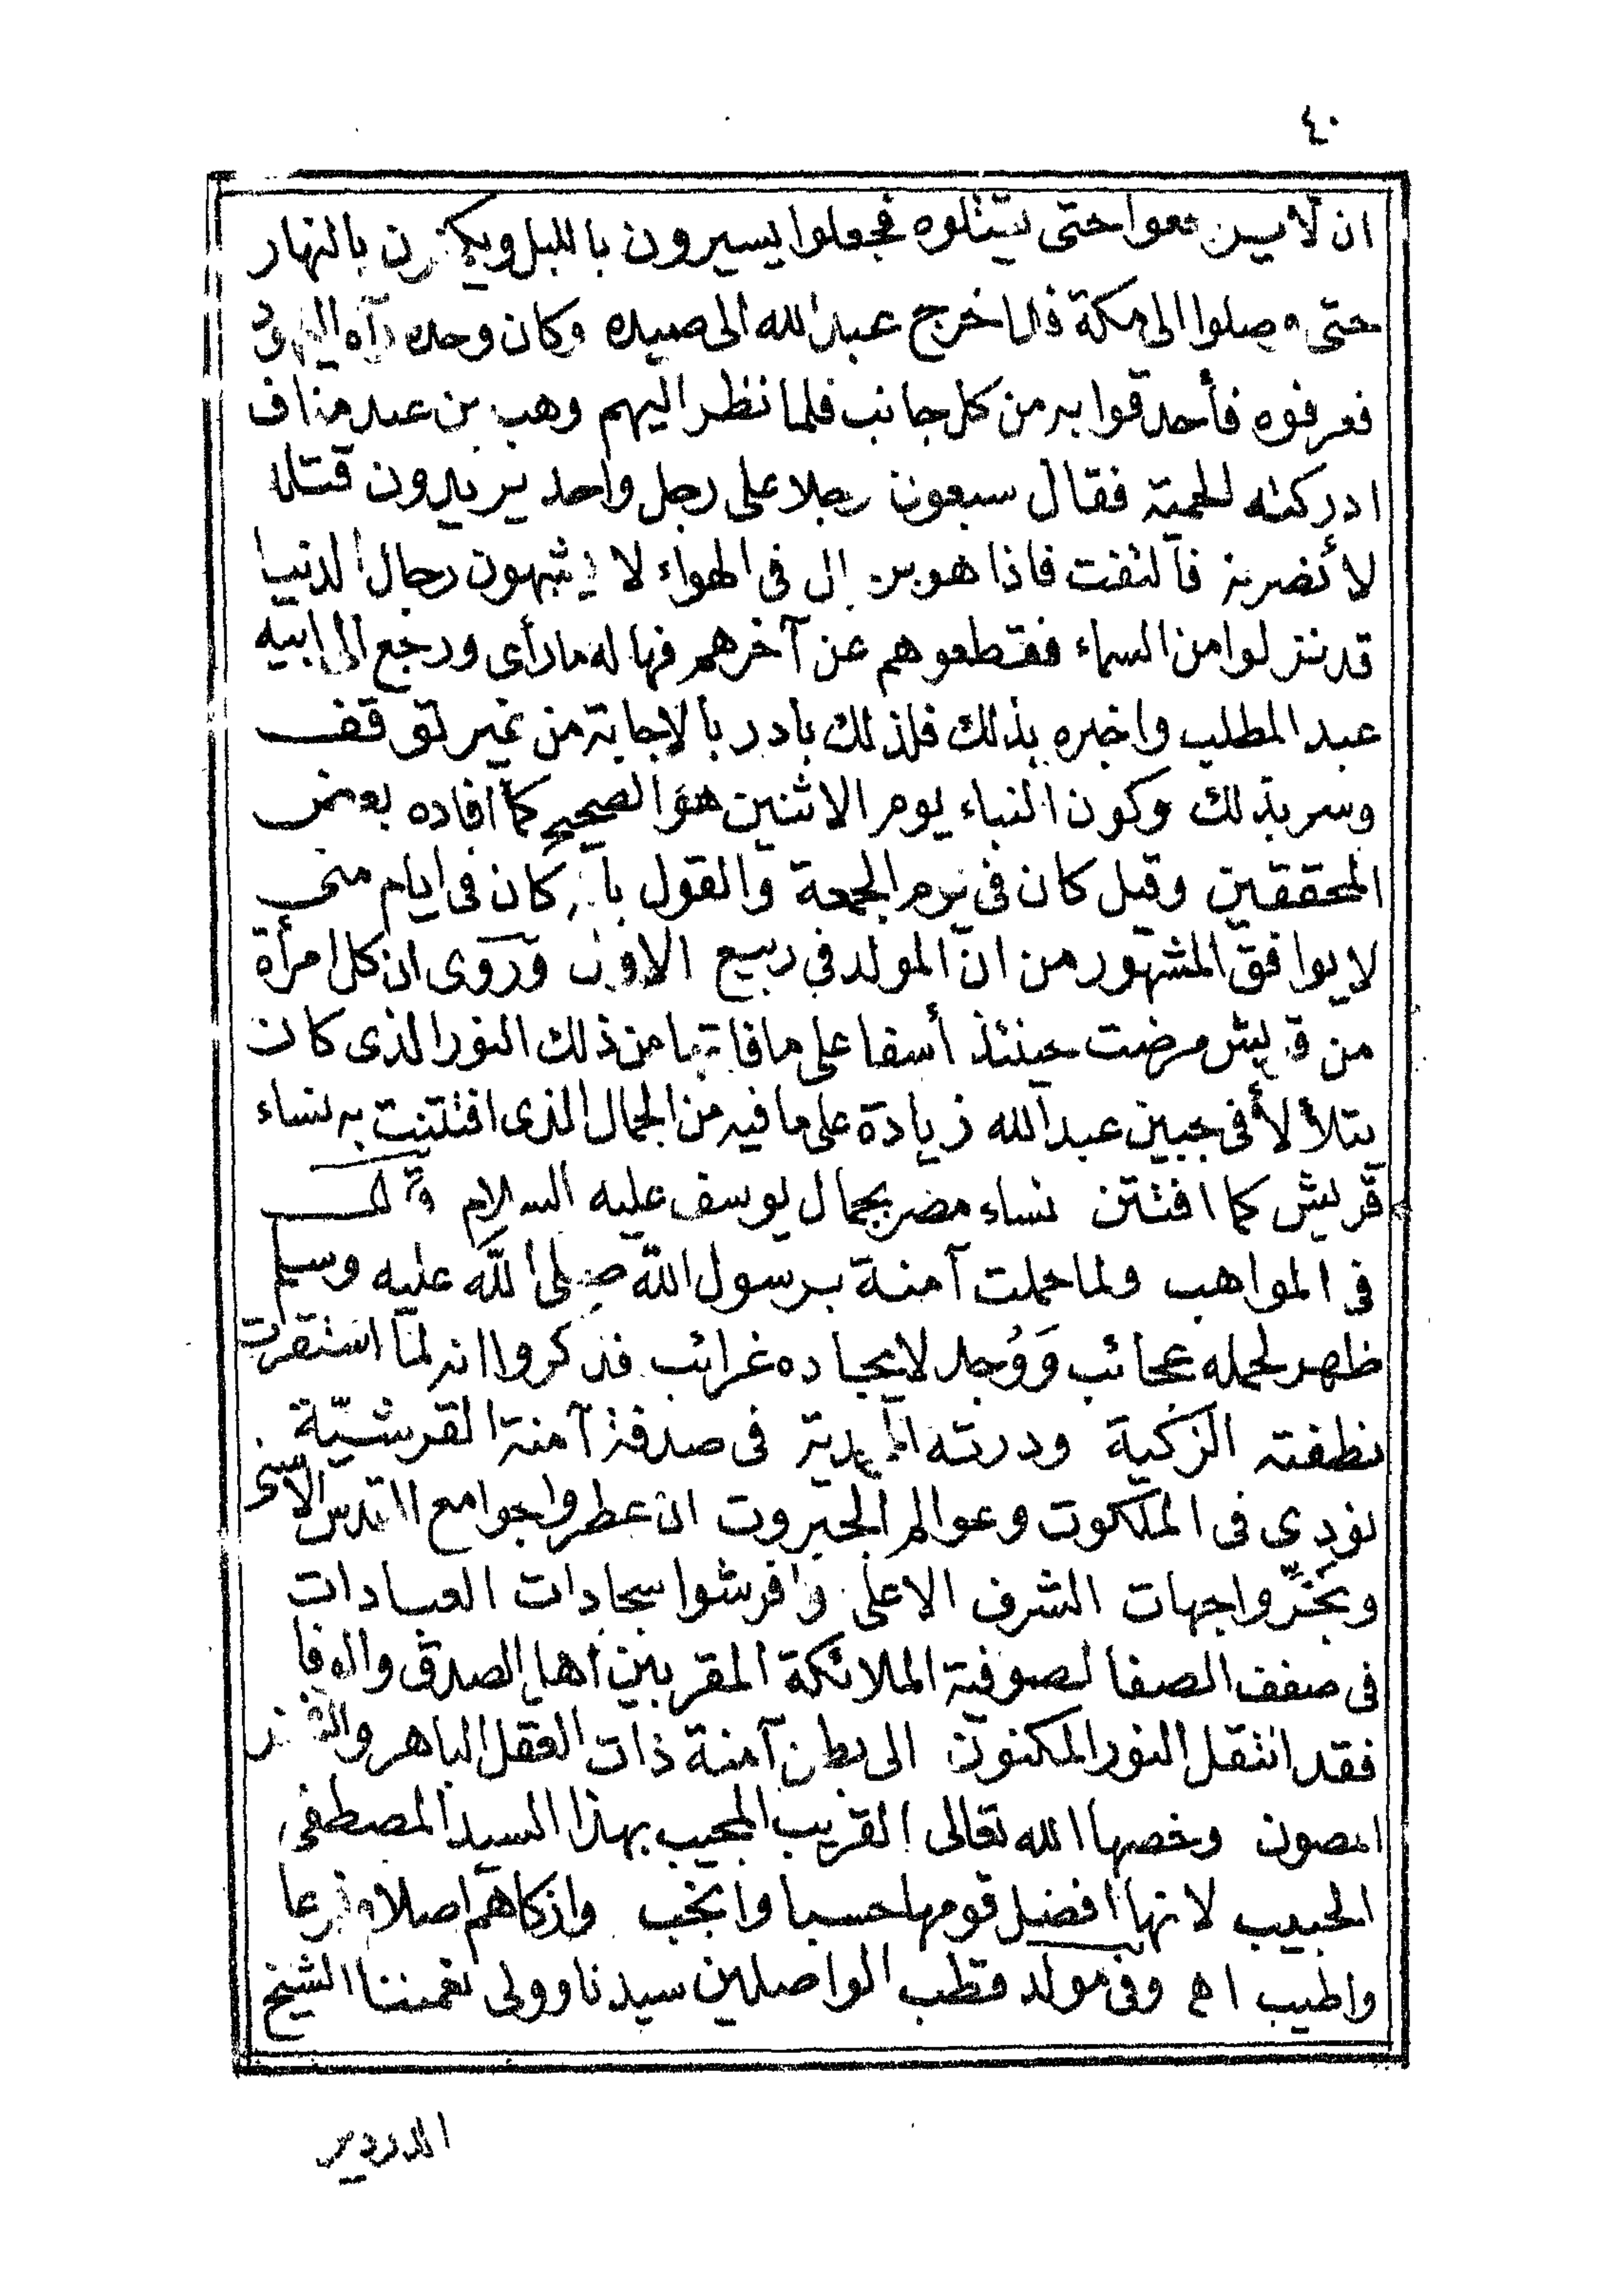 ٤٠
ان لا يرجعوا حتى يقتلوه فجعلوا يسيرون بالليل ويكمنون بالنهار
حتى وصلوا الى مكة فلما خرج عبد الله الى صيده وكان وحده رآه اليهود
فعرفوه فأحدقوا به من كل جانب فلما نظر اليهم وهب بن عبد مناف
ادركته الحمية فقال سبعون رجلا على رجل واحد يريدون قتله
لأنصرنه فالتفت فاذا هو برجال فى الهواء لا يشبهون رجال الدنيا
قد نزلوا من السماء فقطعوهم عن آخرهم فهاله ما رأى ورجع الى ابيه
عبد المطلب واخبره بذلك فلذلك بادر بالاجابة من غير توقف
وسر بذلك وكون البناء يوم الاثنين هو الصحيح كما افاده بعض
المحققين وقيل كان فى يوم الجمعة والقول بأنه كان فى ايام منى
لا يوافق المشهور من ان المولد فى ربيع الاول وروى ان كل امرأة
من قريش مرضت حينئذ أسفا على ما فاتها من ذلك النور الذى كان
يتلألأ فى جبين عبد الله زيادة على ما فيه من الجمال الذى افتتنت به نساء
قريش كما افتتن نساء مصر بجمال يوسف عليه السلام قال
فى المواهب ولما حملت آمنة برسول الله صلى الله عليه وسلم
ظهر لحمله عجائب وَوُجد لايجاده غرائب فذكروا انه لمّا استقرت
نطفته الزكية ودرته المحمدية فى صدفة آمنة القرشيّة
نودى فى الملكوت وعوالم الجبروت ان عطروا جوامع القدس الاسنى
وبَخِّروا جهات الشرف الاعلى وافرشوا سجادات العبادات
فى صفف الصفا لصوفية الملائكة المقربين اهل الصدق والوفا
فقد انتقل النور المكنون الى بطن آمنة ذات العقل الباهر والفخر
المصون وخصها الله تعالى القريب المجيب بهذا السيد المصطفى
الحبيب لانها افضل قومها حسبا وانجب وازكاهم اصلا وفرعا
واطيب اه وفى مولد قطب الواصلين سيدنا وولى نعمتنا الشيخ
الدردير